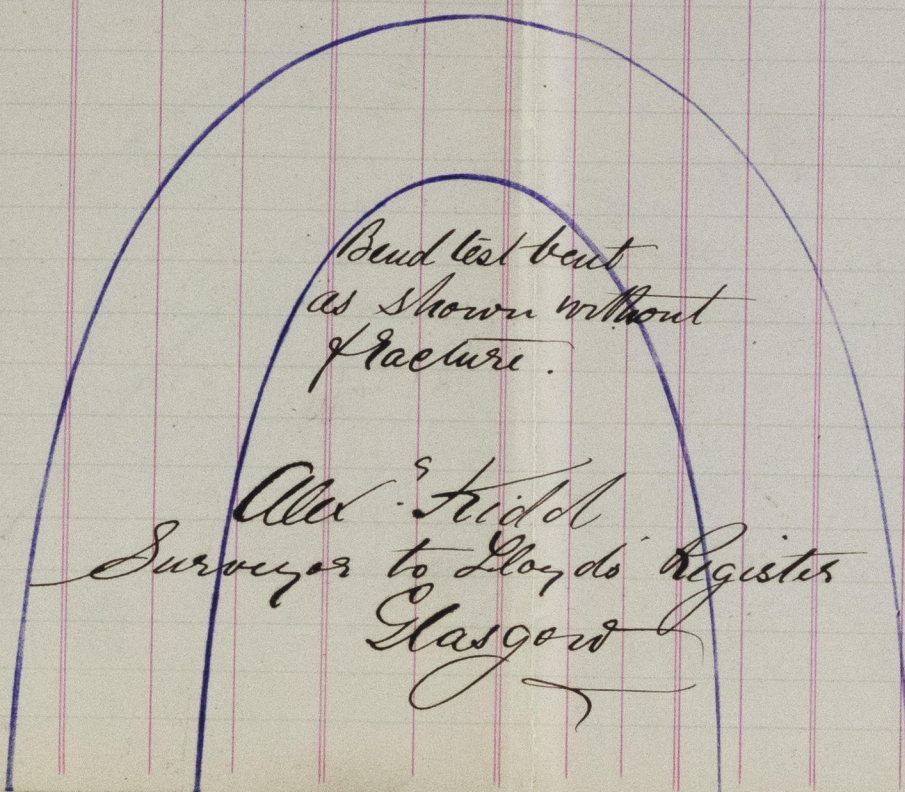 Bend test bent
as shown without
fracture.
Alexr Kidd
Surveyor to Lloyds' Register
Glasgow